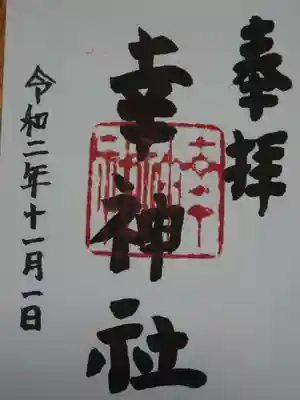 奉拝
幸神社
令和二年十一月一日